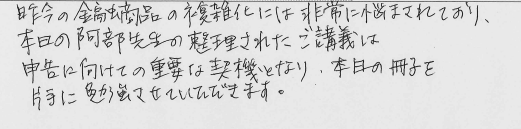 昨今の金融商品の複雑化には非常に悩まされており、
本日の阿部先生の整理されたご講義は
申告に向けての重要な契機となり、本日の冊子を
片手に勉強させていただきます。